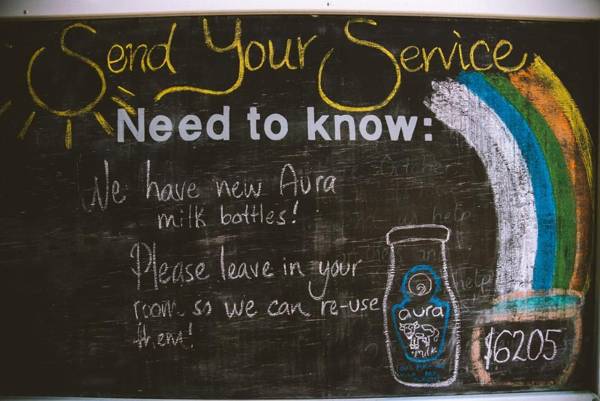 Send Your Service
Need to know:
We have new Aura
milk bottles!
Please leave in your
room so we can re-use
them!
aura
milk
$6205